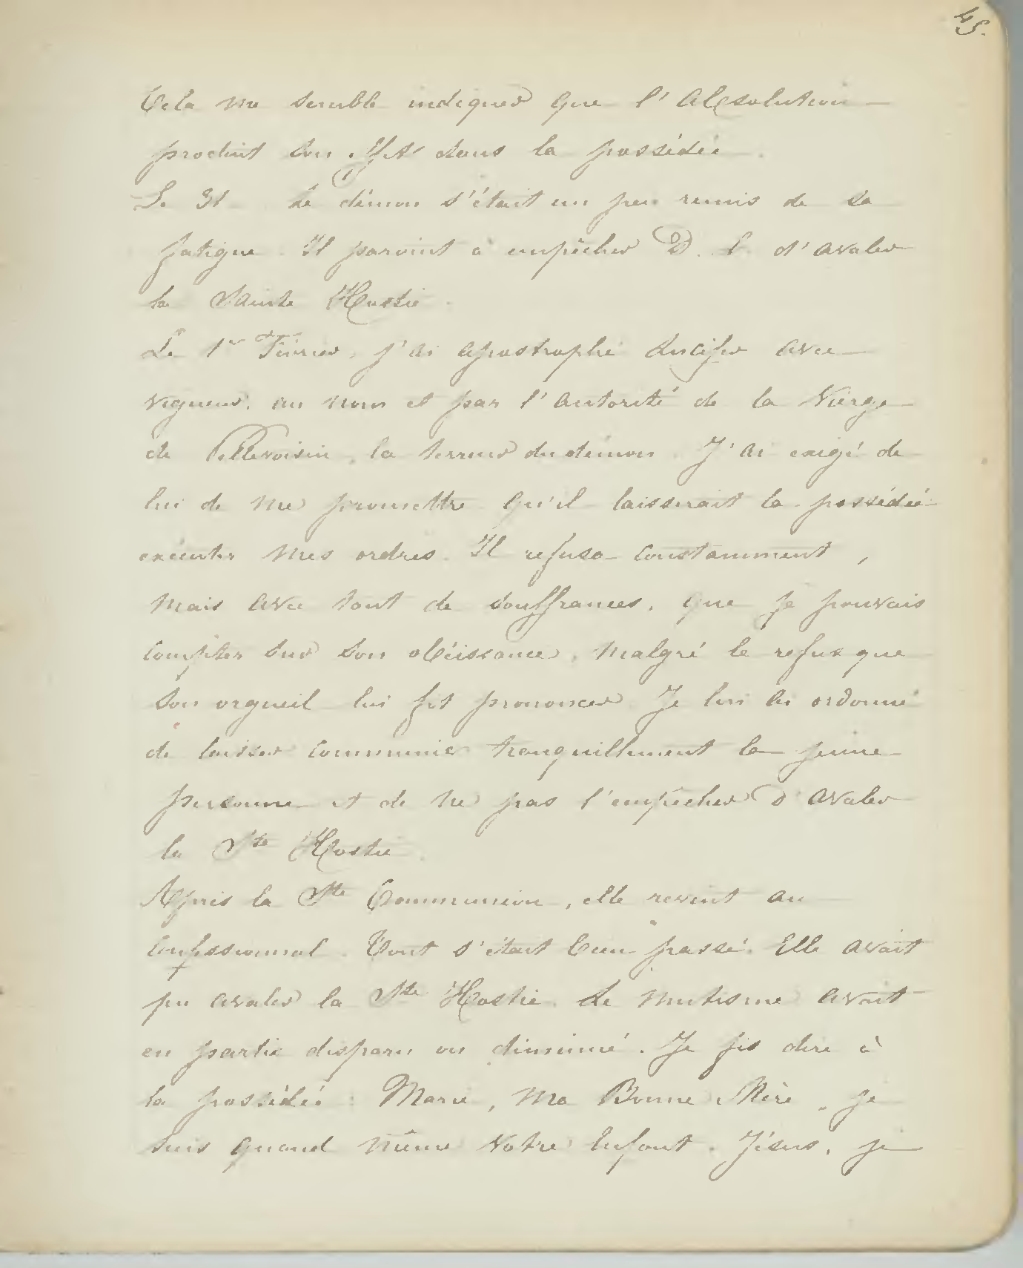 45.
Cela me semble indiquer que l'Absolution
produit son effet dans la possédée.
Le 31 le démon s'était un peu remis de sa
fatigue. Il parvint à empêcher D. C. d'avaler
la Sainte Hostie.
Le 1er Février, j'ai apostrophé Lucifer avec
vigueur, au nom et par l'autorité de la Vierge
de Pellevoisin, la terreur du démon. J'ai exigé de
lui de me promettre qu'il laisserait la possédée
exécuter mes ordres. Il refusa constamment,
mais avec tant de souffrances, que je pouvais
compter sur son obéissance, malgré le refus que
son orgueil lui fit prononcer. Je lui ai ordonné
de laisser communier tranquillement la jeune
personne et de ne pas l'empêcher d'avaler
la Ste Hostie.
Après la Ste Communion, elle revint au
confessionnal. Tout s'était bien passé. Elle avait
pu avaler la Ste Hostie. Le mutisme avait
en partie disparu ou diminué. Je fis dire à
la possédée : Marie, ma Bonne Mère, je
suis quand même votre enfant. Jésus, je